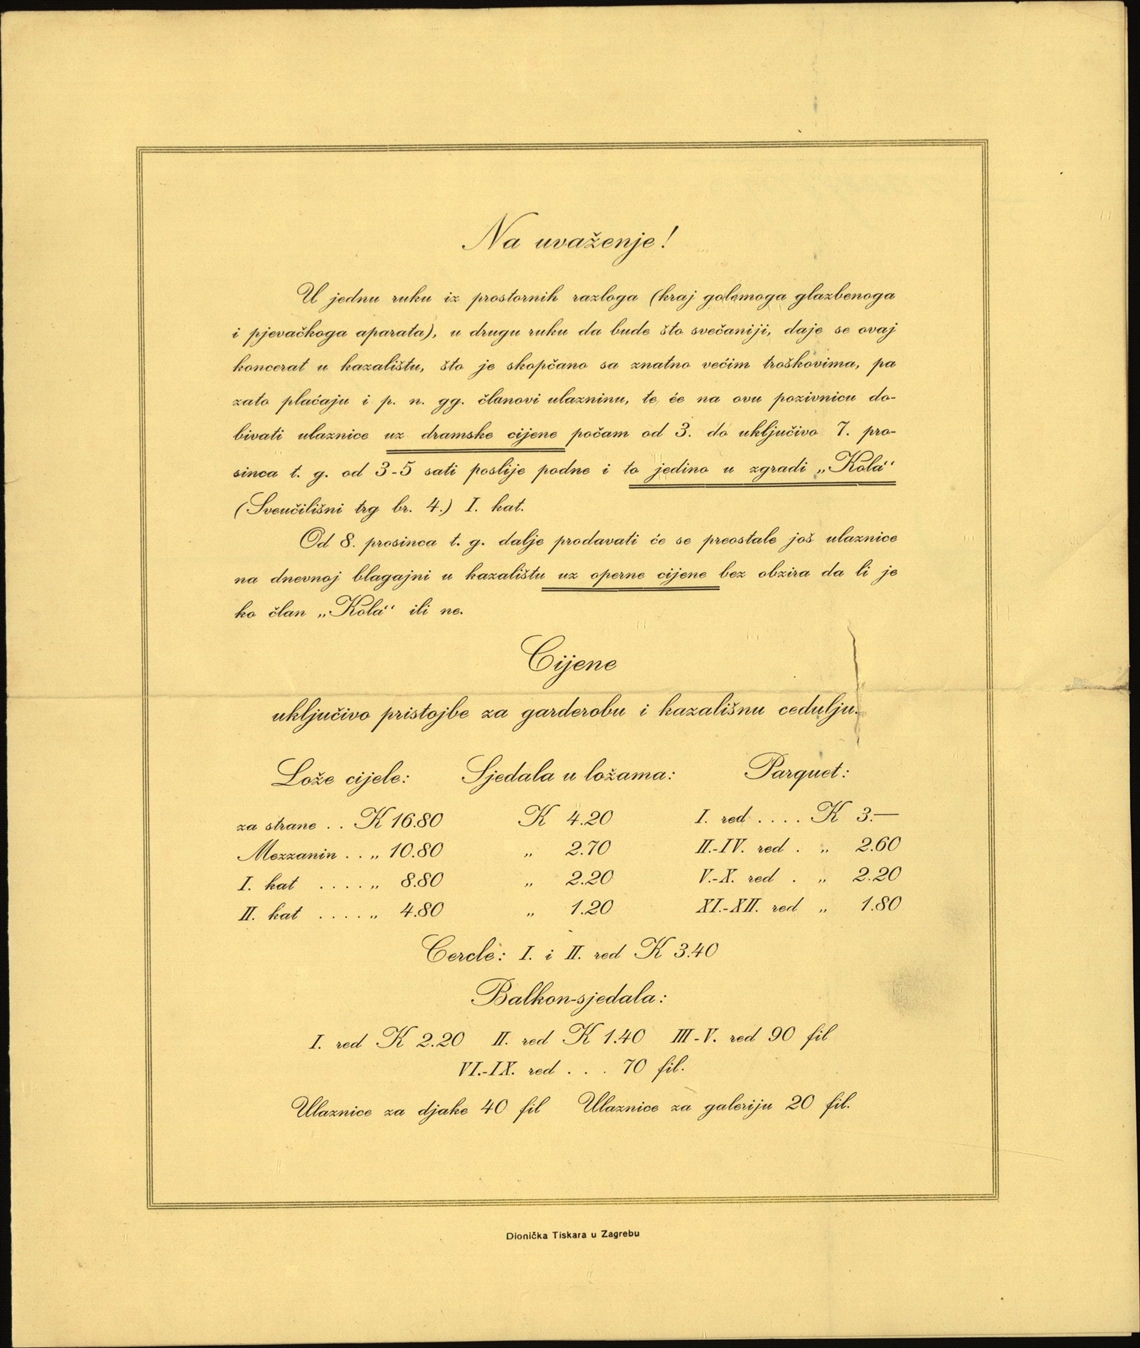 Na uvaženje!
U jednu ruku iz prostornih razloga (kraj golemoga glazbenoga
i pjevačkoga aparata), u drugu ruku da bude što svečaniji, daje se ovaj
koncerat u kazalištu, što je skopčano sa znatno većim troškovima, pa
zato plaćaju i p. n. gg. članovi ulazninu, te će na ovu pozivnicu do-
bivati ulaznice uz dramske cijene počam od 3. do uključivo 7. pro-
sinca t. g. od 3-5 sati poslije podne i to jedino u zgradi „Kola“
(Sveučilišni trg br. 4.) I. kat.
Od 8. prosinca t. g. dalje prodavati će se preostale još ulaznice
na dnevnoj blagajni u kazalištu uz operne cijene bez obzira da li je
ko član „Kola“ ili ne.
Cijene
uključivo pristojbe za garderobu i kazališnu cedulju.
Lože cijele: Sjedala u ložama: Parquet:
za strane . . K 16.80 K 4.20 I. red . . . . K 3.—
Mezzanin . . „ 10.80 „ 2.70 II.-IV. red . „ 2.60
I. kat . . . . „ 8.80 „ 2.20 V.-X. red . „ 2.20
II. kat . . . . „ 4.80 „ 1.20 XI.-XII. red „ 1.80
Cerclè: I. i II. red K 3.40
Balkon-sjedala:
I. red K 2.20 II. red K 1.40 III-V. red 90 fil
VI.-IX. red . . . 70 fil.
Ulaznice za djake 40 fil Ulaznice za galeriju 20 fil.
Dionička Tiskara u Zagrebu